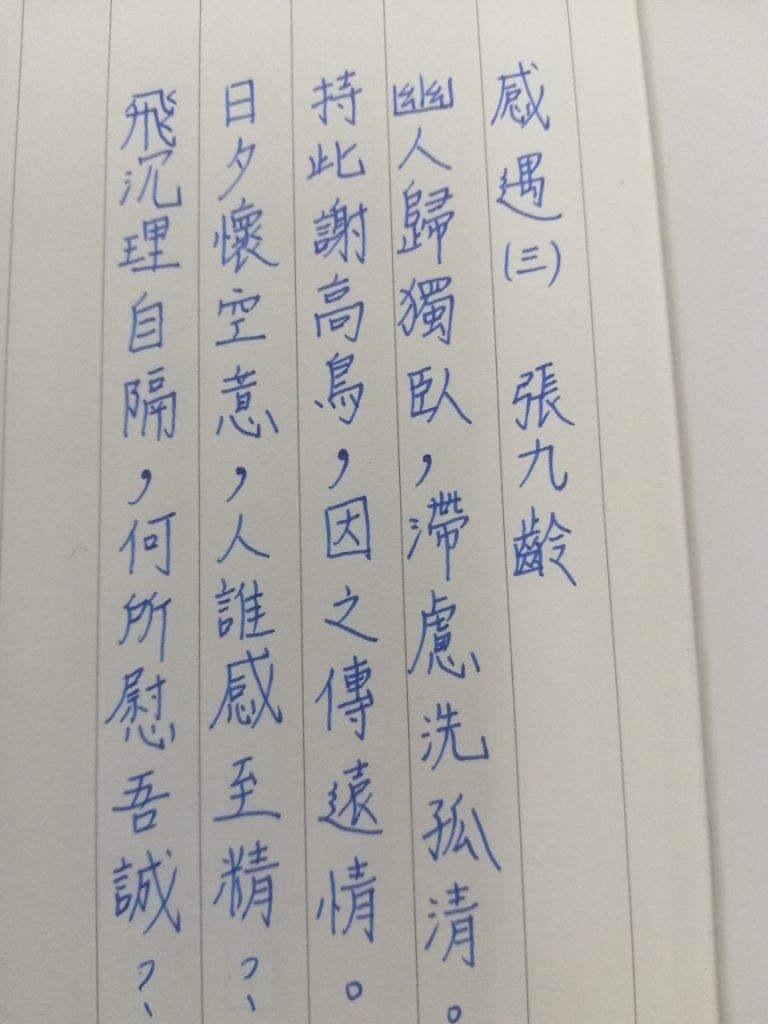 感遇(三) 張九齡
幽人歸獨臥,滯慮洗孤清。
持此謝高鳥,因之傳遠情。
日夕懷空意,人誰感至精?
飛沉理自隔,何所慰吾誠?